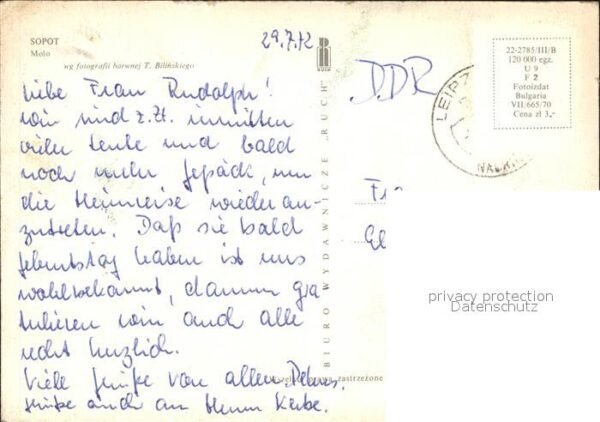 SOPOT
Molo
wg fotografii barwnej T. Bilińskiego
29.7.72
Liebe Frau Rudolph!
wir sind z.Zt. inmitten
vieler Leute und bald
noch mehr Gepäck, um
die Heimreise wieder an-
zutreten. Daß sie bald
Geburtstag haben ist uns
wohlbekannt, darum gra
tulieren wir auch alle
recht herzlich.
Viele Grüße von allen
Grüße auch an Herrn
BIURO WYDAWNICZE „RUCH"
RUCH
zastrzeżone
DDR
LEIPZ
22-2785/III/B
120 000 egz.
U 9
F 2
Fotoizdat
Bulgaria
VII/665/70
Cena zł 3,-
privacy protection
Datenschutz